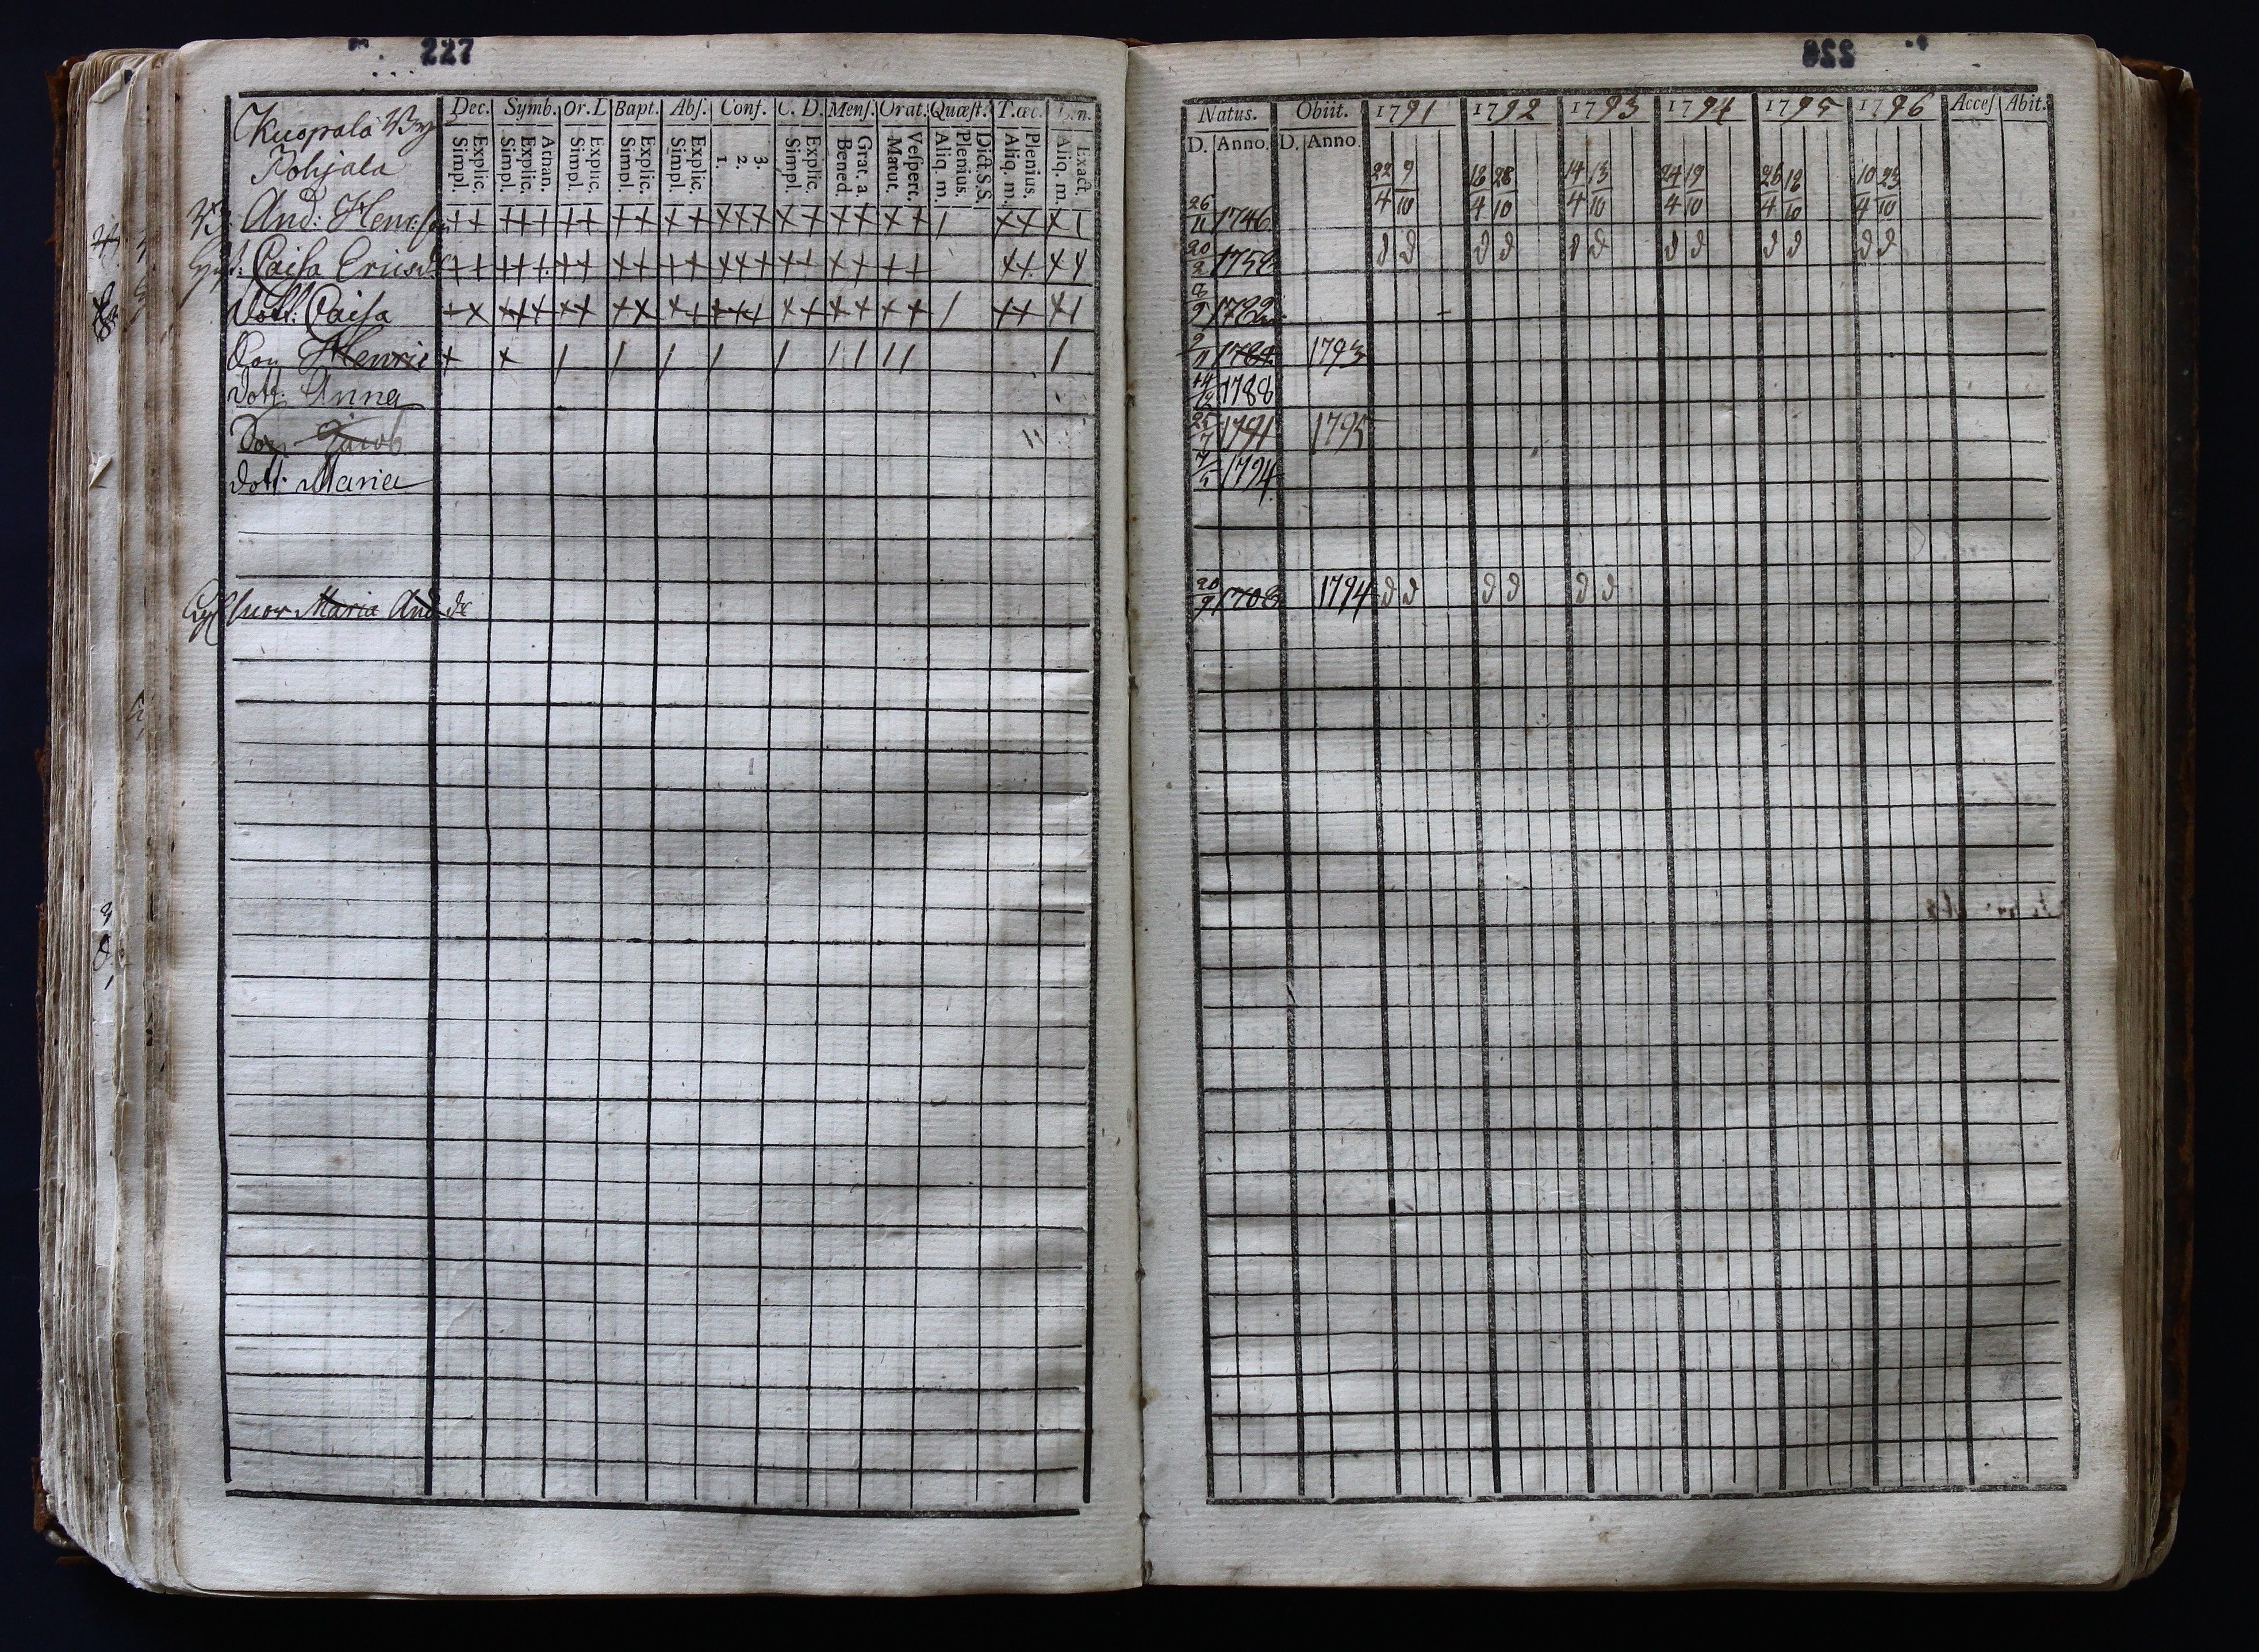 227
Kuopala By
Pohjala
Dec. Symb. Or.D Bapt. Abſ. Conf. C. D. Menſ. Orat. Quæſt. T.œc.
Explic. Simpl. Athan. Explic. Simpl. Explic. Simpl. Explic. Simpl. Explic. Simpl. 3. 2. 1. Explic. Simpl. Grat. a. Bened. Veſpert. Matut. Dict.S.S. Plenius. Aliq. m. Plenius. Aliq. m. Exact. Aliq. m.
And: Henr:ſon
Caiſa Ericsd
Dott: Caiſa
Son Henric
Dott: Anna
Son Jacob
Dott: Maria
Maria And dr
228
Natus. Obiit. 1791 1792 1793 1794 1795 1796 Acceſ Abit.
D. Anno. D. Anno.
22/4 9/10 18/4 28/10 14/4 13/10 24/4 19/10 26/4 18/10 10/4 23/10
26/11 1746
20/2 d d d d d d d d d d d d
8/9
2/11 1793
14/12 1788
25/7 1791 1795
7/5 1794
20/9 1708 1794 d d d d d d